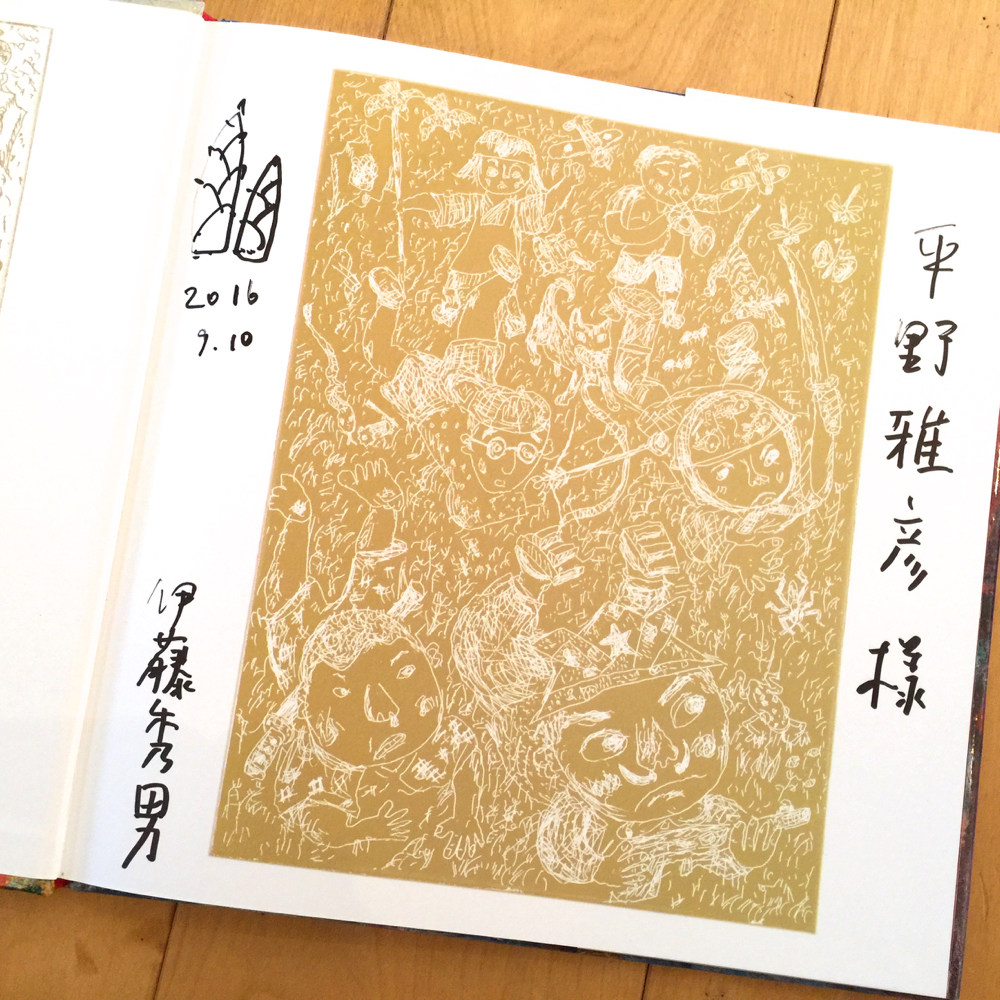 平野雅彦様
2016
9.10
伊藤秀男